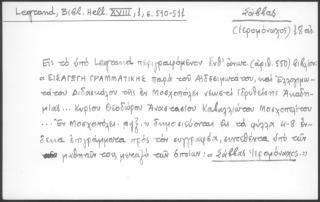 Legrand, Bibl. Hell. XVIII, 1, σ. 510-511
Σάββας
(Ἱερομόναχος) 18 αἰ.
Εἰς τὸ ὑπὸ Legrand περιγραφόμενον ἐνθ' ἀνωτ. (ἀριθ. 550) βιβλίον:
« Εἰσαγωγὴ Γραμματικῆς παρὰ τοῦ Αἰδεσιμωτάτου, καὶ Ἐλλογιμω-
τάτου Διδασκάλου τῆς ἐν Μοσχοπόλει νεωστὶ ἱδρυθείσης Ἀκαδη-
μίας ... Κυρίου Θεοδώρου Ἀναστασίου Καβαλλιώτου Μοσχοπολίτου
... Ἐν Μοσχοπόλει, αψξ΄, » δημοσιεύονται εἰς τὰ φύλλα 4-8 ἕν-
δεκα ἐπιγράμματα πρὸς τὸν συγγραφέα, συντεθέντα ὑπὸ τῶν
μαθητῶν του, μεταξὺ τῶν ὁποίων: « Σάββας Ἱερομόναχος. »